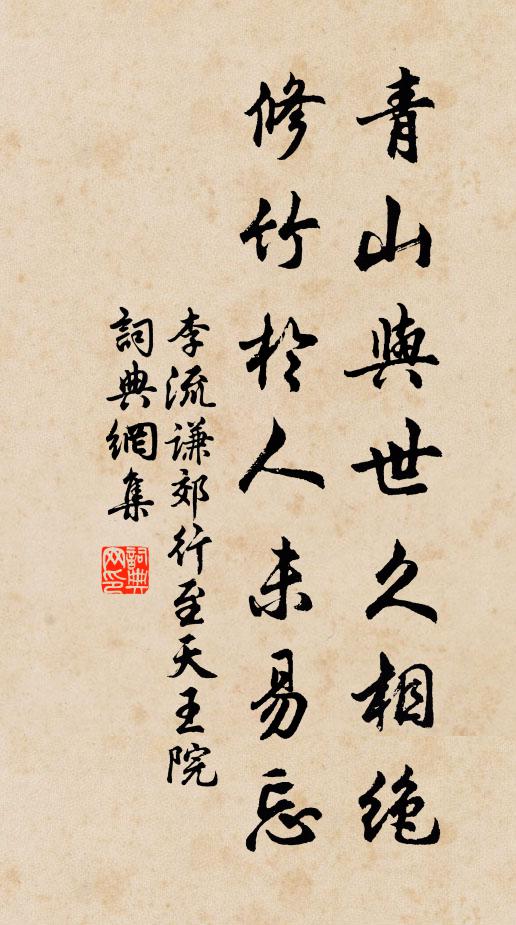 青山與世久相絶
修竹於人未易忘
李流謙郊行至天王院
詞典網集
詞典網印